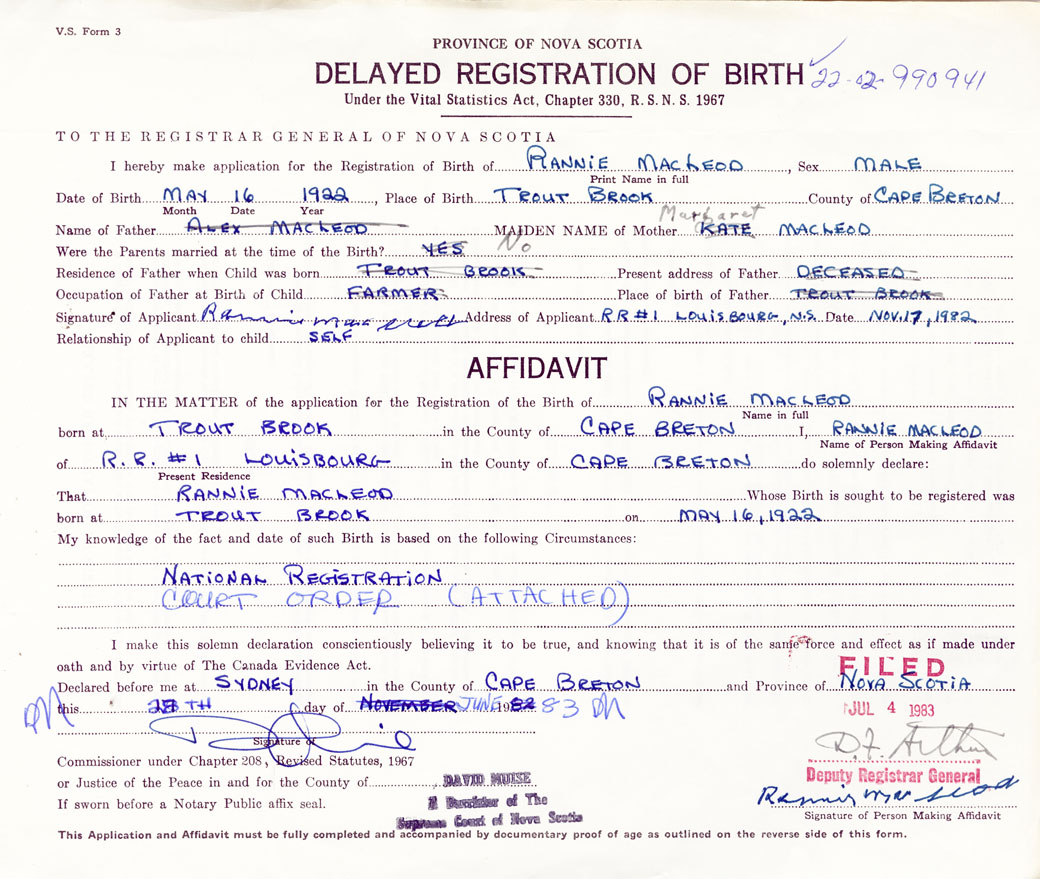 V.S. Form 3
PROVINCE OF NOVA SCOTIA
DELAYED REGISTRATION OF BIRTH 22-02-990941
Under the Vital Statistics Act, Chapter 330, R.S.N.S. 1967
TO THE REGISTRAR GENERAL OF NOVA SCOTIA
I hereby make application for the Registration of Birth of RANNIE MACLEOD, Sex MALE
Print Name in full
Date of Birth MAY 16 1922, Place of Birth TROUT BROOK County of CAPE BRETON
Month Date Year
Margaret
Name of Father ALEX MACLEOD MAIDEN NAME of Mother KATE MACLEOD
Were the Parents married at the time of the Birth? YES No
Residence of Father when Child was born TROUT BROOK Present address of Father DECEASED
Occupation of Father at Birth of Child FARMER Place of birth of Father TROUT BROOK
Signature of Applicant Rannie MacLeod Address of Applicant R.R #1 LOUISBOURG, N.S. Date NOV. 17, 1982
Relationship of Applicant to child SELF
AFFIDAVIT
IN THE MATTER of the application for the Registration of the Birth of RANNIE MACLEOD
Name in full
born at TROUT BROOK in the County of CAPE BRETON I, RANNIE MACLEOD
Name of Person Making Affidavit
of R.R. #1 LOUISBOURG in the County of CAPE BRETON do solemnly declare:
Present Residence
That RANNIE MACLEOD Whose Birth is sought to be registered was
born at TROUT BROOK on MAY 16, 1922
My knowledge of the fact and date of such Birth is based on the following Circumstances:
NATIONAL REGISTRATION
COURT ORDER (ATTACHED)
I make this solemn declaration conscientiously believing it to be true, and knowing that it is of the same force and effect as if made under
oath and by virtue of The Canada Evidence Act.
FILED
Declared before me at SYDNEY in the County of CAPE BRETON and Province of NOVA SCOTIA
DM this 28TH day of NOVEMBER JUNE 1982 83 DM
JUL 4 1983
Signature of
D.F. Arthur
Commissioner under Chapter 208, Revised Statutes, 1967
Deputy Registrar General
or Justice of the Peace in and for the County of DAVID MUISE
Rannie MacLeod
If sworn before a Notary Public affix seal. A Barrister of The
Signature of Person Making Affidavit
Supreme Court of Nova Scotia
This Application and Affidavit must be fully completed and accompanied by documentary proof of age as outlined on the reverse side of this form.